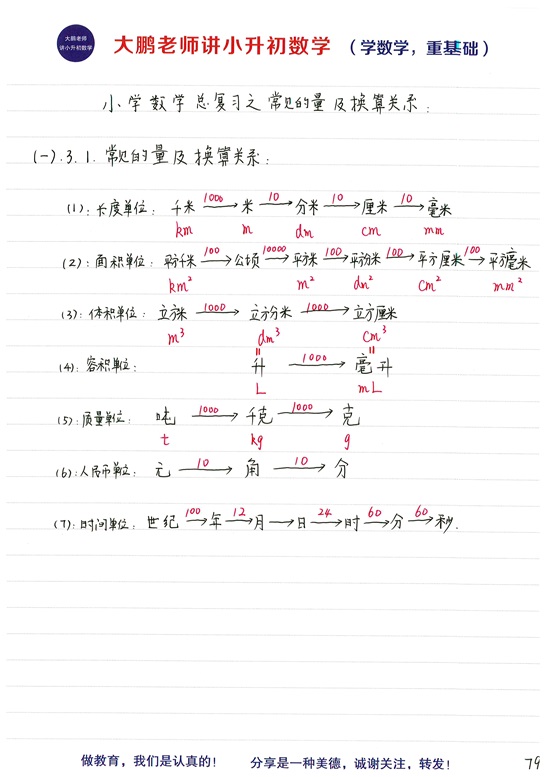 大鹏老师
讲小升初数学
大鹏老师讲小升初数学 (学数学，重基础)
小学数学总复习之常见的量及换算关系：
(一).3.1.常见的量及换算关系：
(1)：长度单位： 千米 1000→ 米 10→ 分米 10→ 厘米 10→ 毫米
km m dm cm mm
(2)：面积单位：平方千米 100→ 公顷 10000→ 平方米 100→ 平方分米 100→ 平方厘米 100→ 平方毫米
km² m² dm² cm² mm²
(3)：体积单位：立方米 1000→ 立方分米 1000→ 立方厘米
m³ dm³ cm³
(4)：容积单位： 升 1000→ 毫升
L mL
(5)：质量单位： 吨 1000→ 千克 1000→ 克
t kg g
(6)：人民币单位： 元 10→ 角 10→ 分
(7)：时间单位：世纪 100→ 年 12→ 月 → 日 24→ 时 60→ 分 60→ 秒.
做教育，我们是认真的！ 分享是一种美德，诚谢关注，转发！ 79